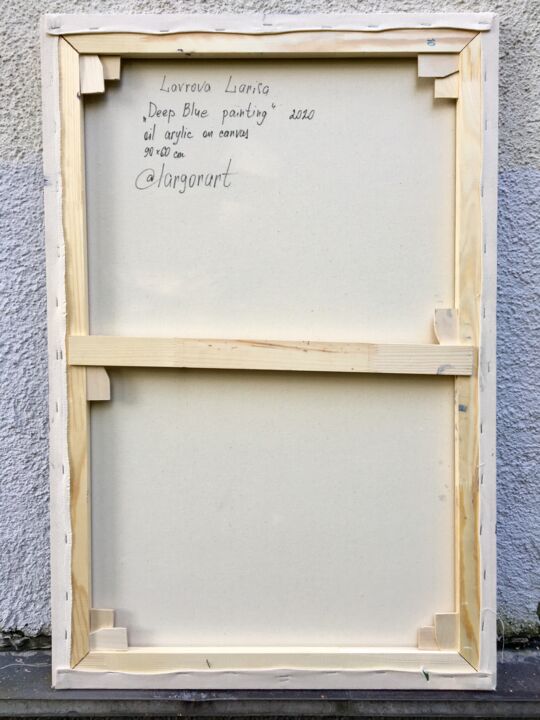 Lavrova Larisa
„Deep Blue painting“ 2020
oil arylic on canvas
90×60 cm
@largorart
10